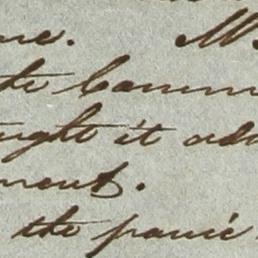 me. Mr
te Comm
ught it adv
ment.
the panic